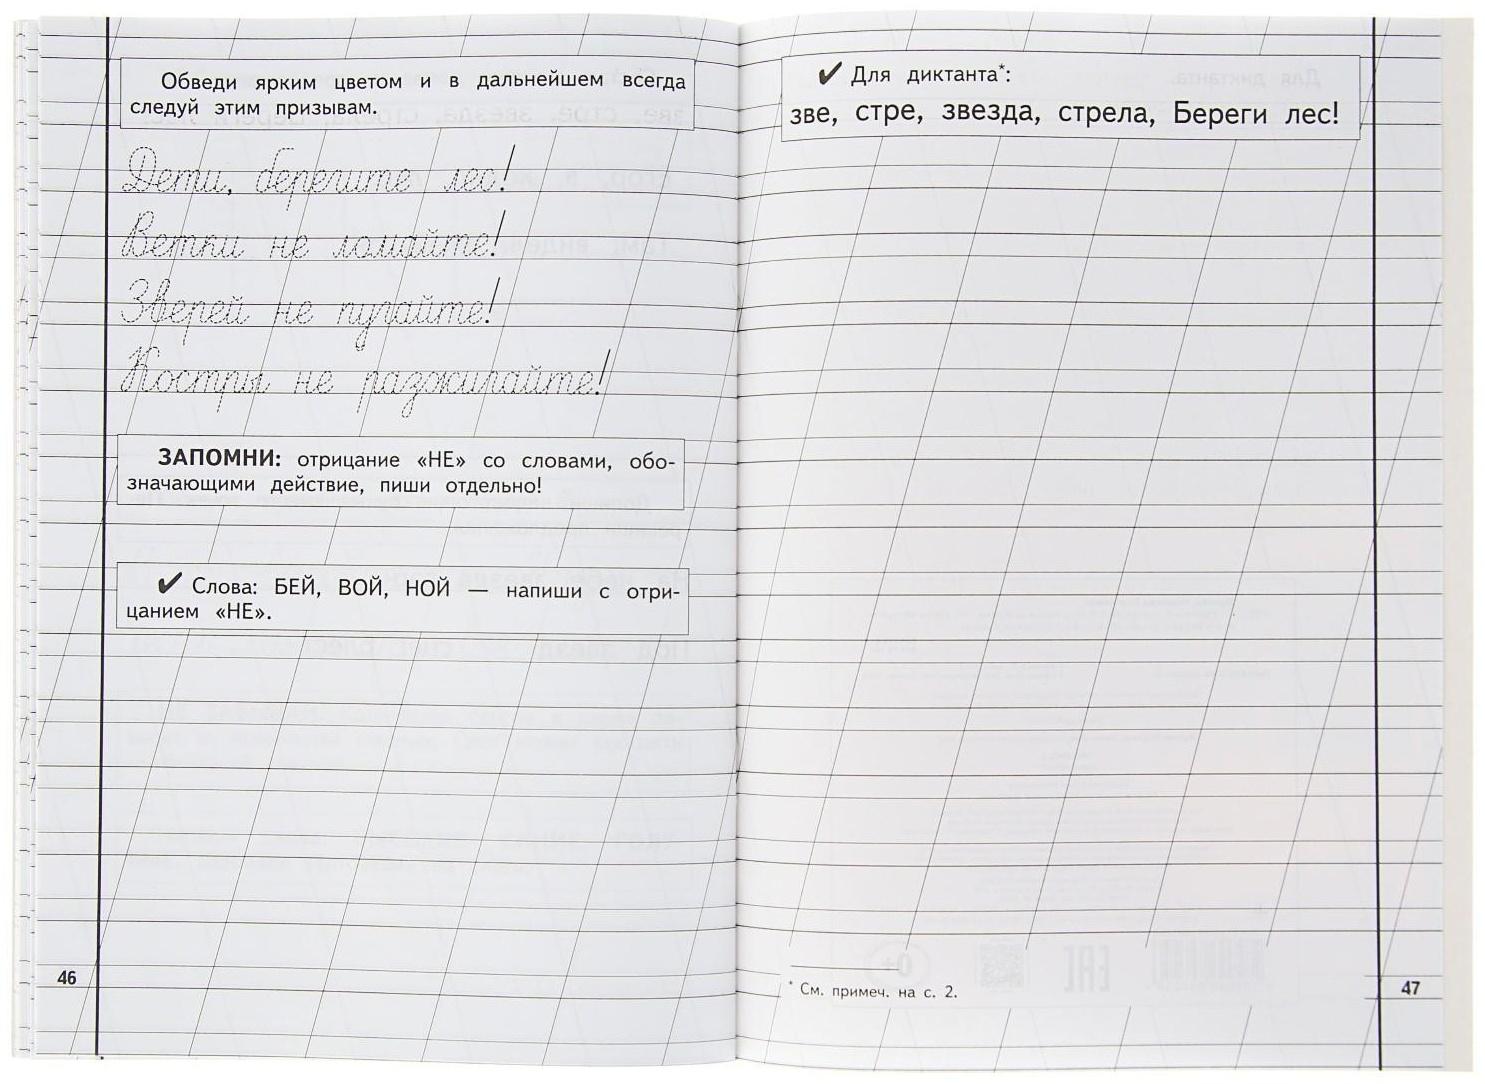 Обведи ярким цветом и в дальнейшем всегда
следуй этим призывам.
Дети, берегите лес!
Ветки не ломайте!
Зверей не пугайте!
Костры не разжигайте!
ЗАПОМНИ: отрицание «НЕ» со словами, обо-
значающими действие, пиши отдельно!
✔ Слова: БЕЙ, ВОЙ, НОЙ — напиши с отри-
цанием «НЕ».
46
✔ Для диктанта*:
зве, стре, звезда, стрела, Береги лес!
* См. примеч. на с. 2.
47